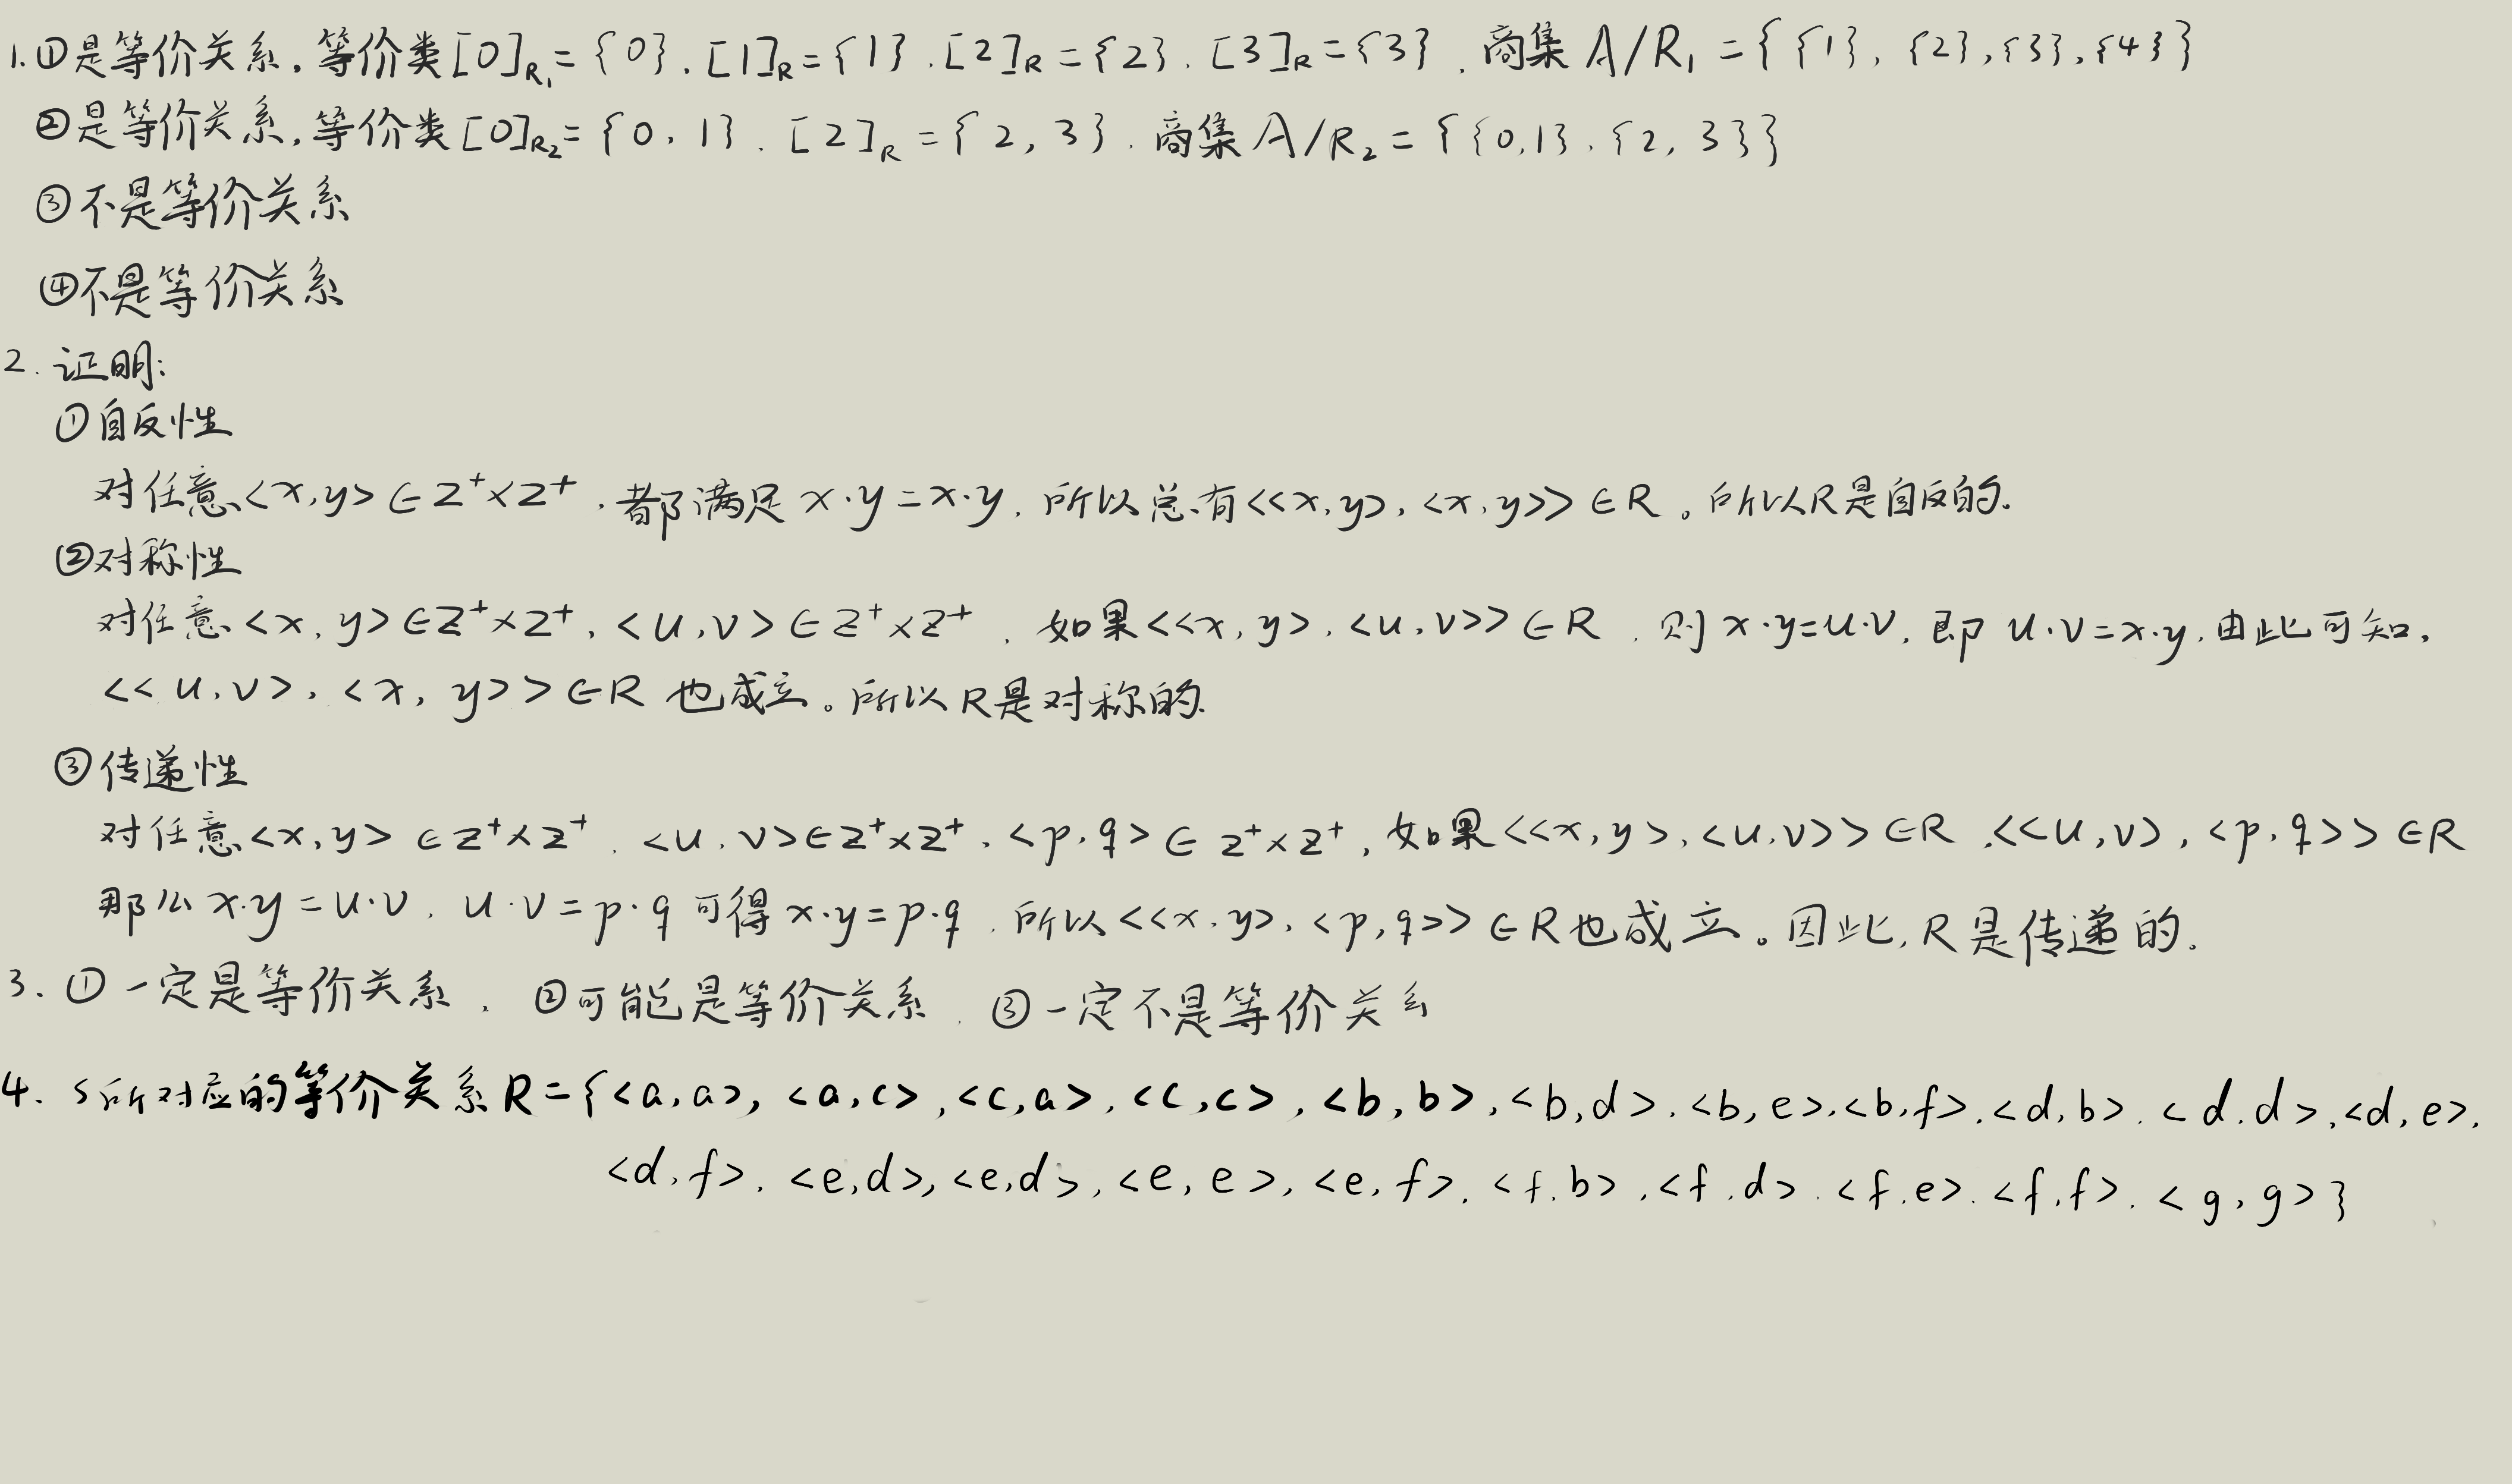 1.①是等价关系,等价类[0]R₁={0}.[1]R={1}.[2]R={2}.[3]R={3}.商集A/R₁={{1},{2},{3},{4}}
②是等价关系,等价类[0]R₂={0,1}.[2]R={2,3}.商集A/R₂={{0,1},{2,3}}
③不是等价关系
④不是等价关系
2.证明:
①自反性
对任意<x,y>∈Z⁺×Z⁺,都满足x·y=x·y,所以总有<<x,y>,<x,y>>∈R。所以R是自反的.
②对称性
对任意<x,y>∈Z⁺×Z⁺,<u,v>∈Z⁺×Z⁺,如果<<x,y>,<u,v>>∈R,则x·y=u·v,即u·v=x·y,由此可知,
<<u,v>,<x,y>>∈R也成立。所以R是对称的.
③传递性
对任意<x,y>∈Z⁺×Z⁺,<u,v>∈Z⁺×Z⁺,<p,q>∈Z⁺×Z⁺,如果<<x,y>,<u,v>>∈R,<<u,v>,<p,q>>∈R
那么x·y=u·v,u·v=p·q可得x·y=p·q,所以<<x,y>,<p,q>>∈R也成立。因此,R是传递的。
3.①一定是等价关系,②可能是等价关系,③一定不是等价关系
4.S所对应的等价关系R={<a,a>,<a,c>,<c,a>,<c,c>,<b,b>,<b,d>,<b,e>,<b,f>,<d,b>,<d,d>,<d,e>,
<d,f>,<e,d>,<e,d>,<e,e>,<e,f>,<f,b>,<f,d>,<f,e>,<f,f>,<g,g>}